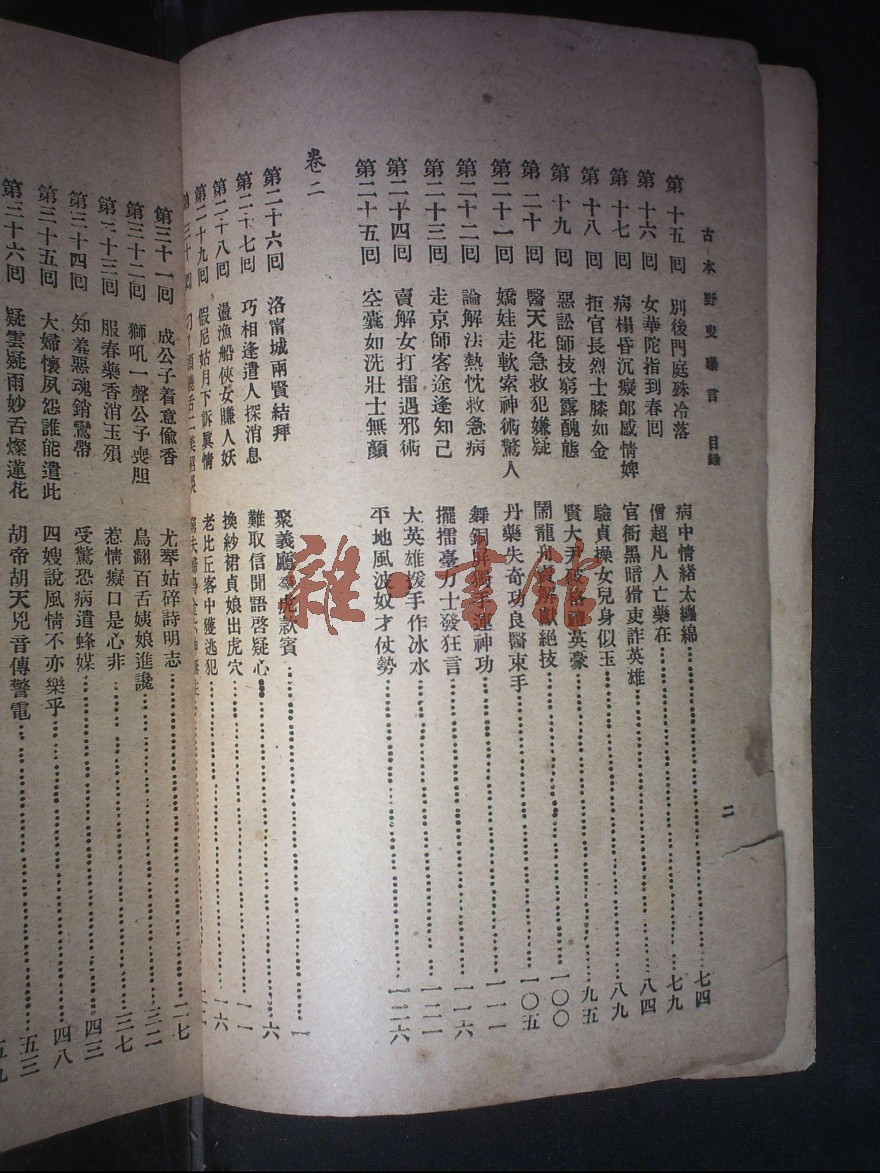 古本野叟曝言 目錄
第十五回 別後門庭殊冷落 病中情緒太纏綿 七四
第十六回 女華陀指到春回 僧超凡人亡藥在 七九
第十七回 病榻昏沉癡郎感情婢 官衙黑暗猾吏詐英雄 八四
第十八回 拒官長烈士膝如金 驗貞操女兒身似玉 八九
第十九回 惡訟師技窮露醜態 賢大尹破格禮英豪 九五
第二十回 醫天花急救犯嫌疑 鬧龍舟 絕技 一〇〇
第二十一回 嬌娃走軟索神術驚人 丹藥失奇功良醫束手 一〇五
第二十二回 論解法熱忱救急病 舞銅屏獨手運神功 一一一
第二十三回 走京師客途逢知己 擺擂臺力士發狂言 一一六
第二十四回 賣解女打擂遇邪術 大英雄援手作冰水 一二一
第二十五回 空囊如洗壯士無顏 平地風波奴才仗勢 一二六
卷二
第二十六回 洛甯城兩賢結拜 聚義廳羣虎款賓 一
第二十七回 巧相逢遣人探消息 難取信聞語啓疑心 六
第二十八回 盪漁船俠女賺人妖 換紗裙貞娘出虎穴 一一
第二十九回 假尼姑月下訴眞情 老比丘客中獲逃犯 一六
第三十回
第三十一回 成公子着意偷香 尤琴姑碎詩明志 二七
第三十二回 獅吼一聲公子喪胆 鳥翻百舌姨娘進讒 三二
第三十三回 服春藥香消玉殞 惹情癡口是心非 三七
第三十四回 知羞惡魂銷鸞帶 受驚恐病遣蜂媒 四三
第三十五回 大婦懷夙怨誰能遣此 四嫂說風情不亦樂乎 四八
第三十六回 疑雲疑雨妙舌燦蓮花 胡帝胡天兇音傳警電 五三
五九
二
雜·書館